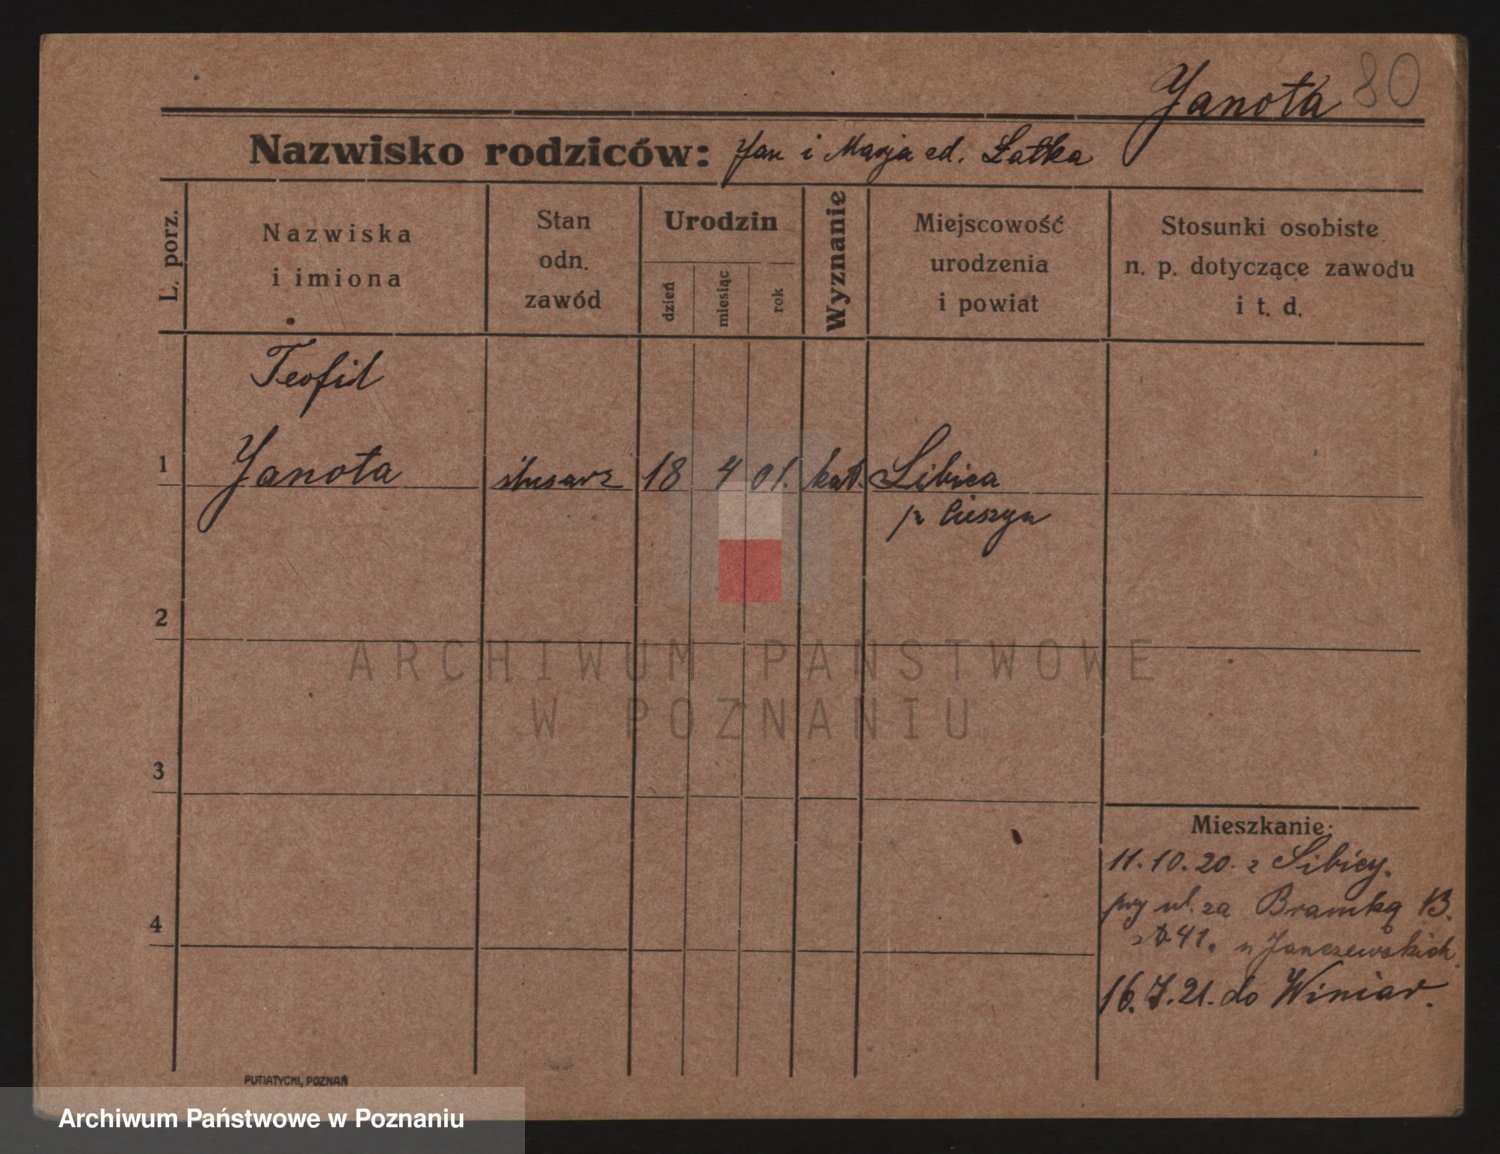 Janota 80
Nazwisko rodziców: Jan i Marja od. Łatka
L. porz.
Nazwiska
i imiona
Stan
odn.
zawód
Urodzin
dzień
miesiąc
rok
Wyznanie
Miejscowość
urodzenia
i powiat
Stosunki osobiste
n. p. dotyczące zawodu
i t. d.
Teofil
1 Janota ślusarz 18 4 01. kat. Libica
p Cieszyn
2
ARCHIWUM PAŃSTWOWE
W POZNANIU
3
Mieszkanie:
11.10.20. z Libicy.
przy ul. za Bramką 13.
41. u Janczewskich.
16.7.21. do Winiar.
4
PUTIATYCKI, POZNAŃ
Archiwum Państwowe w Poznaniu